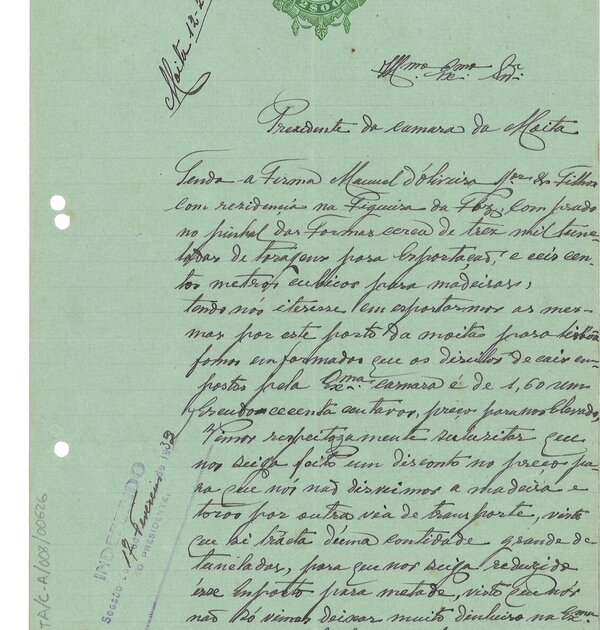 Moita 12-2
Illmo Exmo Snr.
Prezidente da camara da Moita
Tendo a Firma Manuel d'Oliveira Jor & Filhos
com rezidencia na Figueira da Foz, comprado
no pinhal das Formas cerca de trez mil tune-
ladas de toragens para Exportação, e ceis cen-
tos metros cubicos para madeiras,
tendo nós iteresse em esportarmos as mes-
mas por este porto da moita para Lisbôa
fomos emformados que os direitos de cais em-
postos pela Exma camara é de 1,60 um
Escudo e cecenta centavos, preço para nos Elevado,
Vimos respeitozamente sulicitar que
nos seija feito um disconto no preço pa-
ra que nós não disveimos a madeira e
toros por outra via de transporte, visto
que si tracta d'uma contidade grande de
tuneladas, para que nos seija reduzido
esse Emposto para metade, visto que nós
não só vimos deixar muito dinheiro na Exma
INDEFERIDO
Sessão de 18 Fevereiro de 1933
O PRESIDENTE,
TA/C-A/008/00626